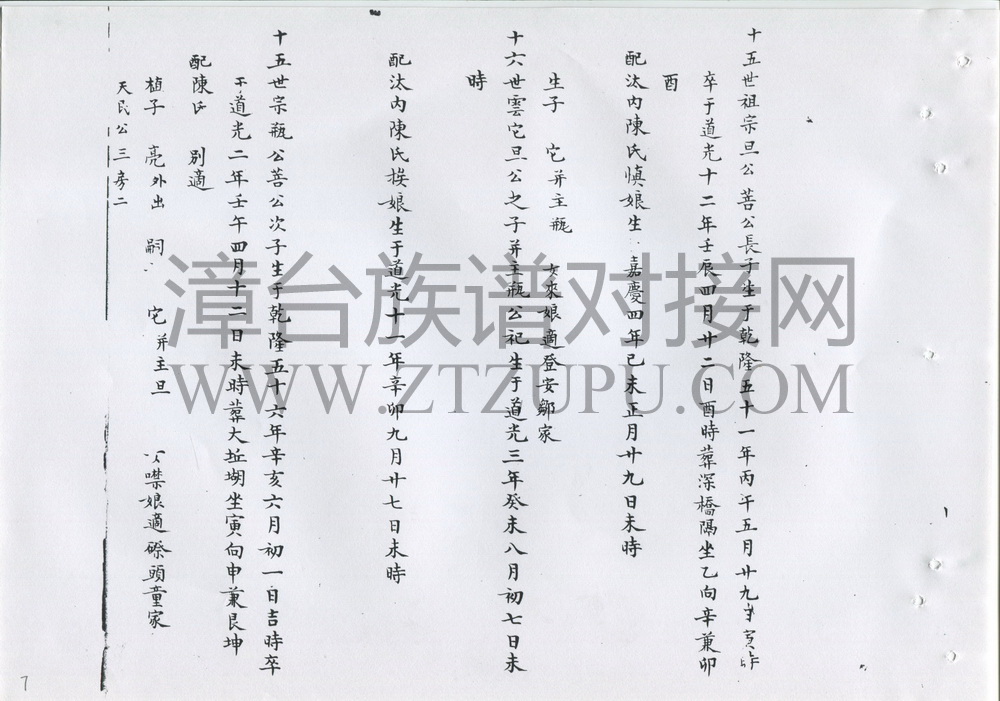 十五世祖宗旦公 菩公長子生于乾隆五十一年丙午五月廿九 寅時
卒于道光十二年壬辰四月廿二日酉時葬深橋隔坐乙向辛兼卯
酉
配汰內陳氏慎娘生 嘉慶四年己未正月廿九日未時
生子 它并主瓶 女來娘適登安鄒家
十六世雲它旦公之子并主瓶公祀生于道光三年癸未八月初七日未
時
配汰內陳氏挨娘生于道光十一年辛卯九月廿七日未時
十五世宗瓶公菩公次子生于乾隆五十六年辛亥六月初一日吉時卒
于道光二年壬午四月十二日未時葬大坵堋坐寅向申兼艮坤
配陳氏 别適
植子 亮外出 嗣 它并主旦 女噤娘適磜頭童家
天民公三房二
7
漳台族谱对接网
WWW.ZTZUPU.COM